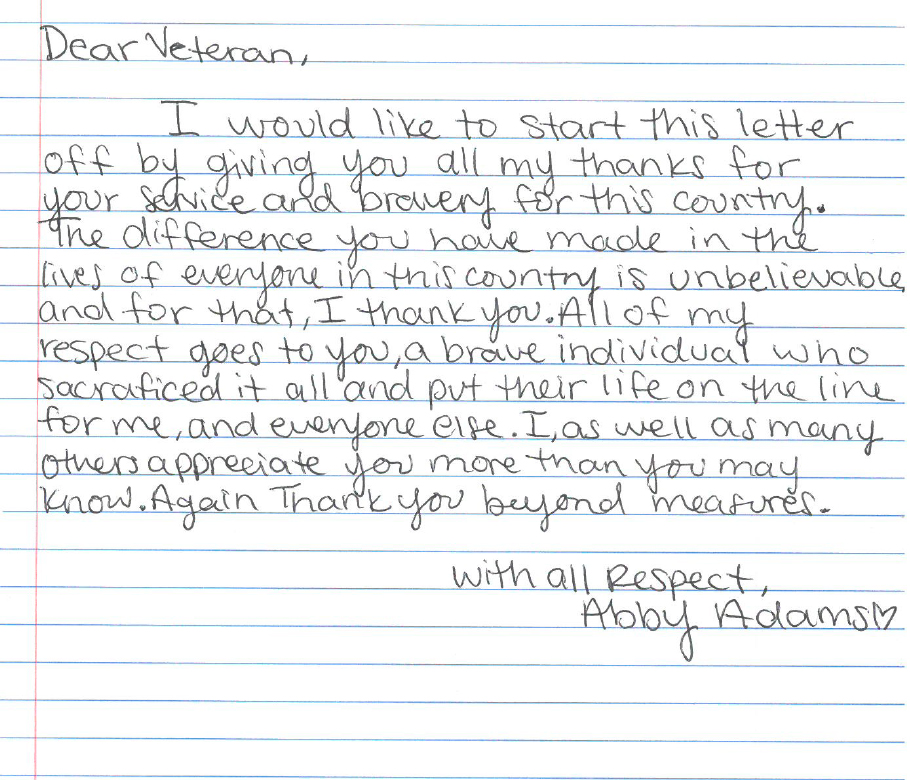 Dear Veteran,
I would like to start this letter
off by giving you all my thanks for
your service and bravery for this country.
The difference you have made in the
lives of everyone in this country is unbelievable
and for that, I thank you. All of my
respect goes to you, a brave individual who
sacraficed it all and put their life on the line
for me, and everyone else. I, as well as many
others appreciate you more than you may
know. Again Thank you beyond measures.
With all Respect,
Abby Adams♡